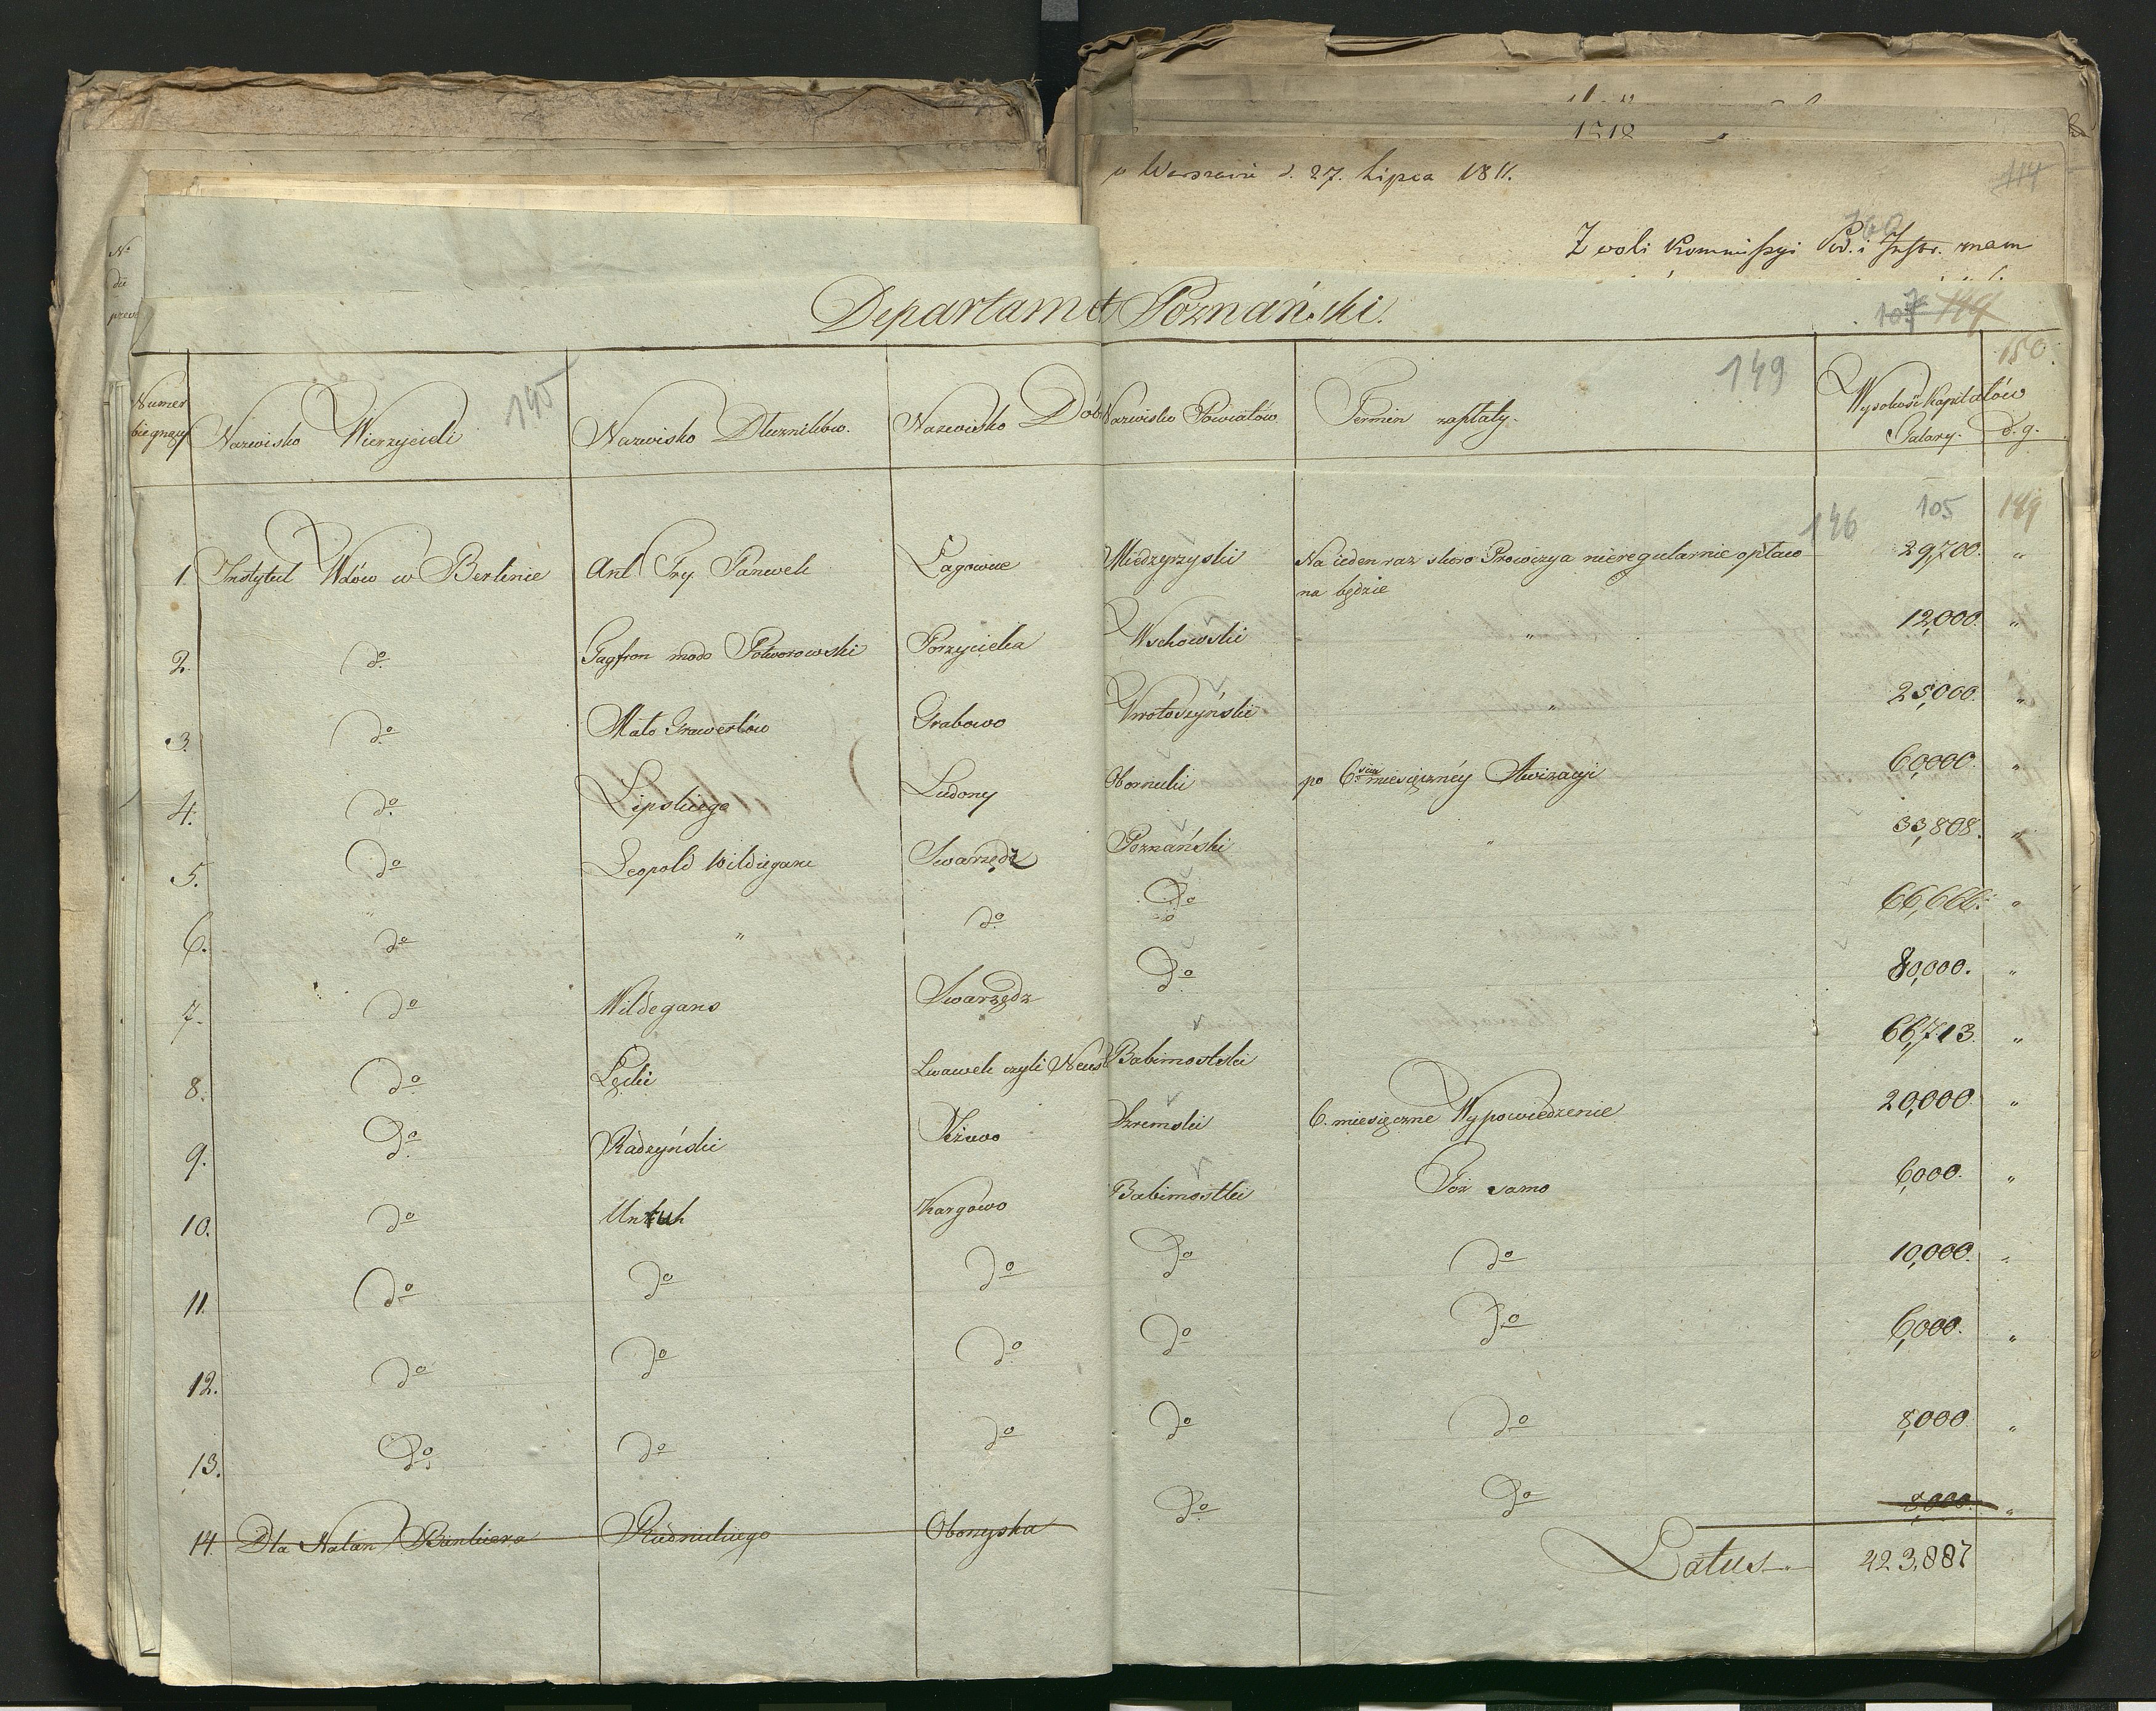 1812
w Warszawie d. 27. Lipca 1811.
114
Z woli Kommissyi Pod. i Instr. mam
Departam t Poznański.
107 144
150
145
149
Numer biegnący
Nazwisko Wierzycieli
Nazwisko Dłuzników.
Nazwisko Dób
Nazwisko Powiatów
Termin zapłaty.
Wysokość Kapitałów
Talary. d. g.
146 105 149
1. Instytut Wdów w Berlinie Ant Fry. Panwek Łagowiec Miedzyrzyski Na ieden raz skoro Prowizya nieregularnie opłaco 29,700. "
na będzie
2. do Gagfron modo Potworowski Porzycielka Wschowski " 12,000. "
3. do Mato Grawertów Grabowo Krotoszyński " 25,000. "
4. do Lipskiego Ludomy Obornicki po 6.ścio miesięcznéy Awizacyi 60,000. "
5. do Leopold Wildegans Swarzędz Poznański " 33,808. "
6. do " do Do 66,666. "
7. do Wildegans Swarzędz Do 80,000. "
8. do Łęcki Lwawek czyli Neust Babimostski 66,713. "
9. Do Radzyński Xżowo Szremski 6. miesięczne Wypowiedzenie 20,000. "
10. do Unruh Kargowo Babimostki Toż samo 6,000. "
11. do do do Do do 10,000. "
12. do do do Do Do 6,000. "
13. Do do do Do do 8,000. "
14. Dla Natan Bankiera Rudnickiego Obonyska Do Do 8,000. "
Latus 423,887